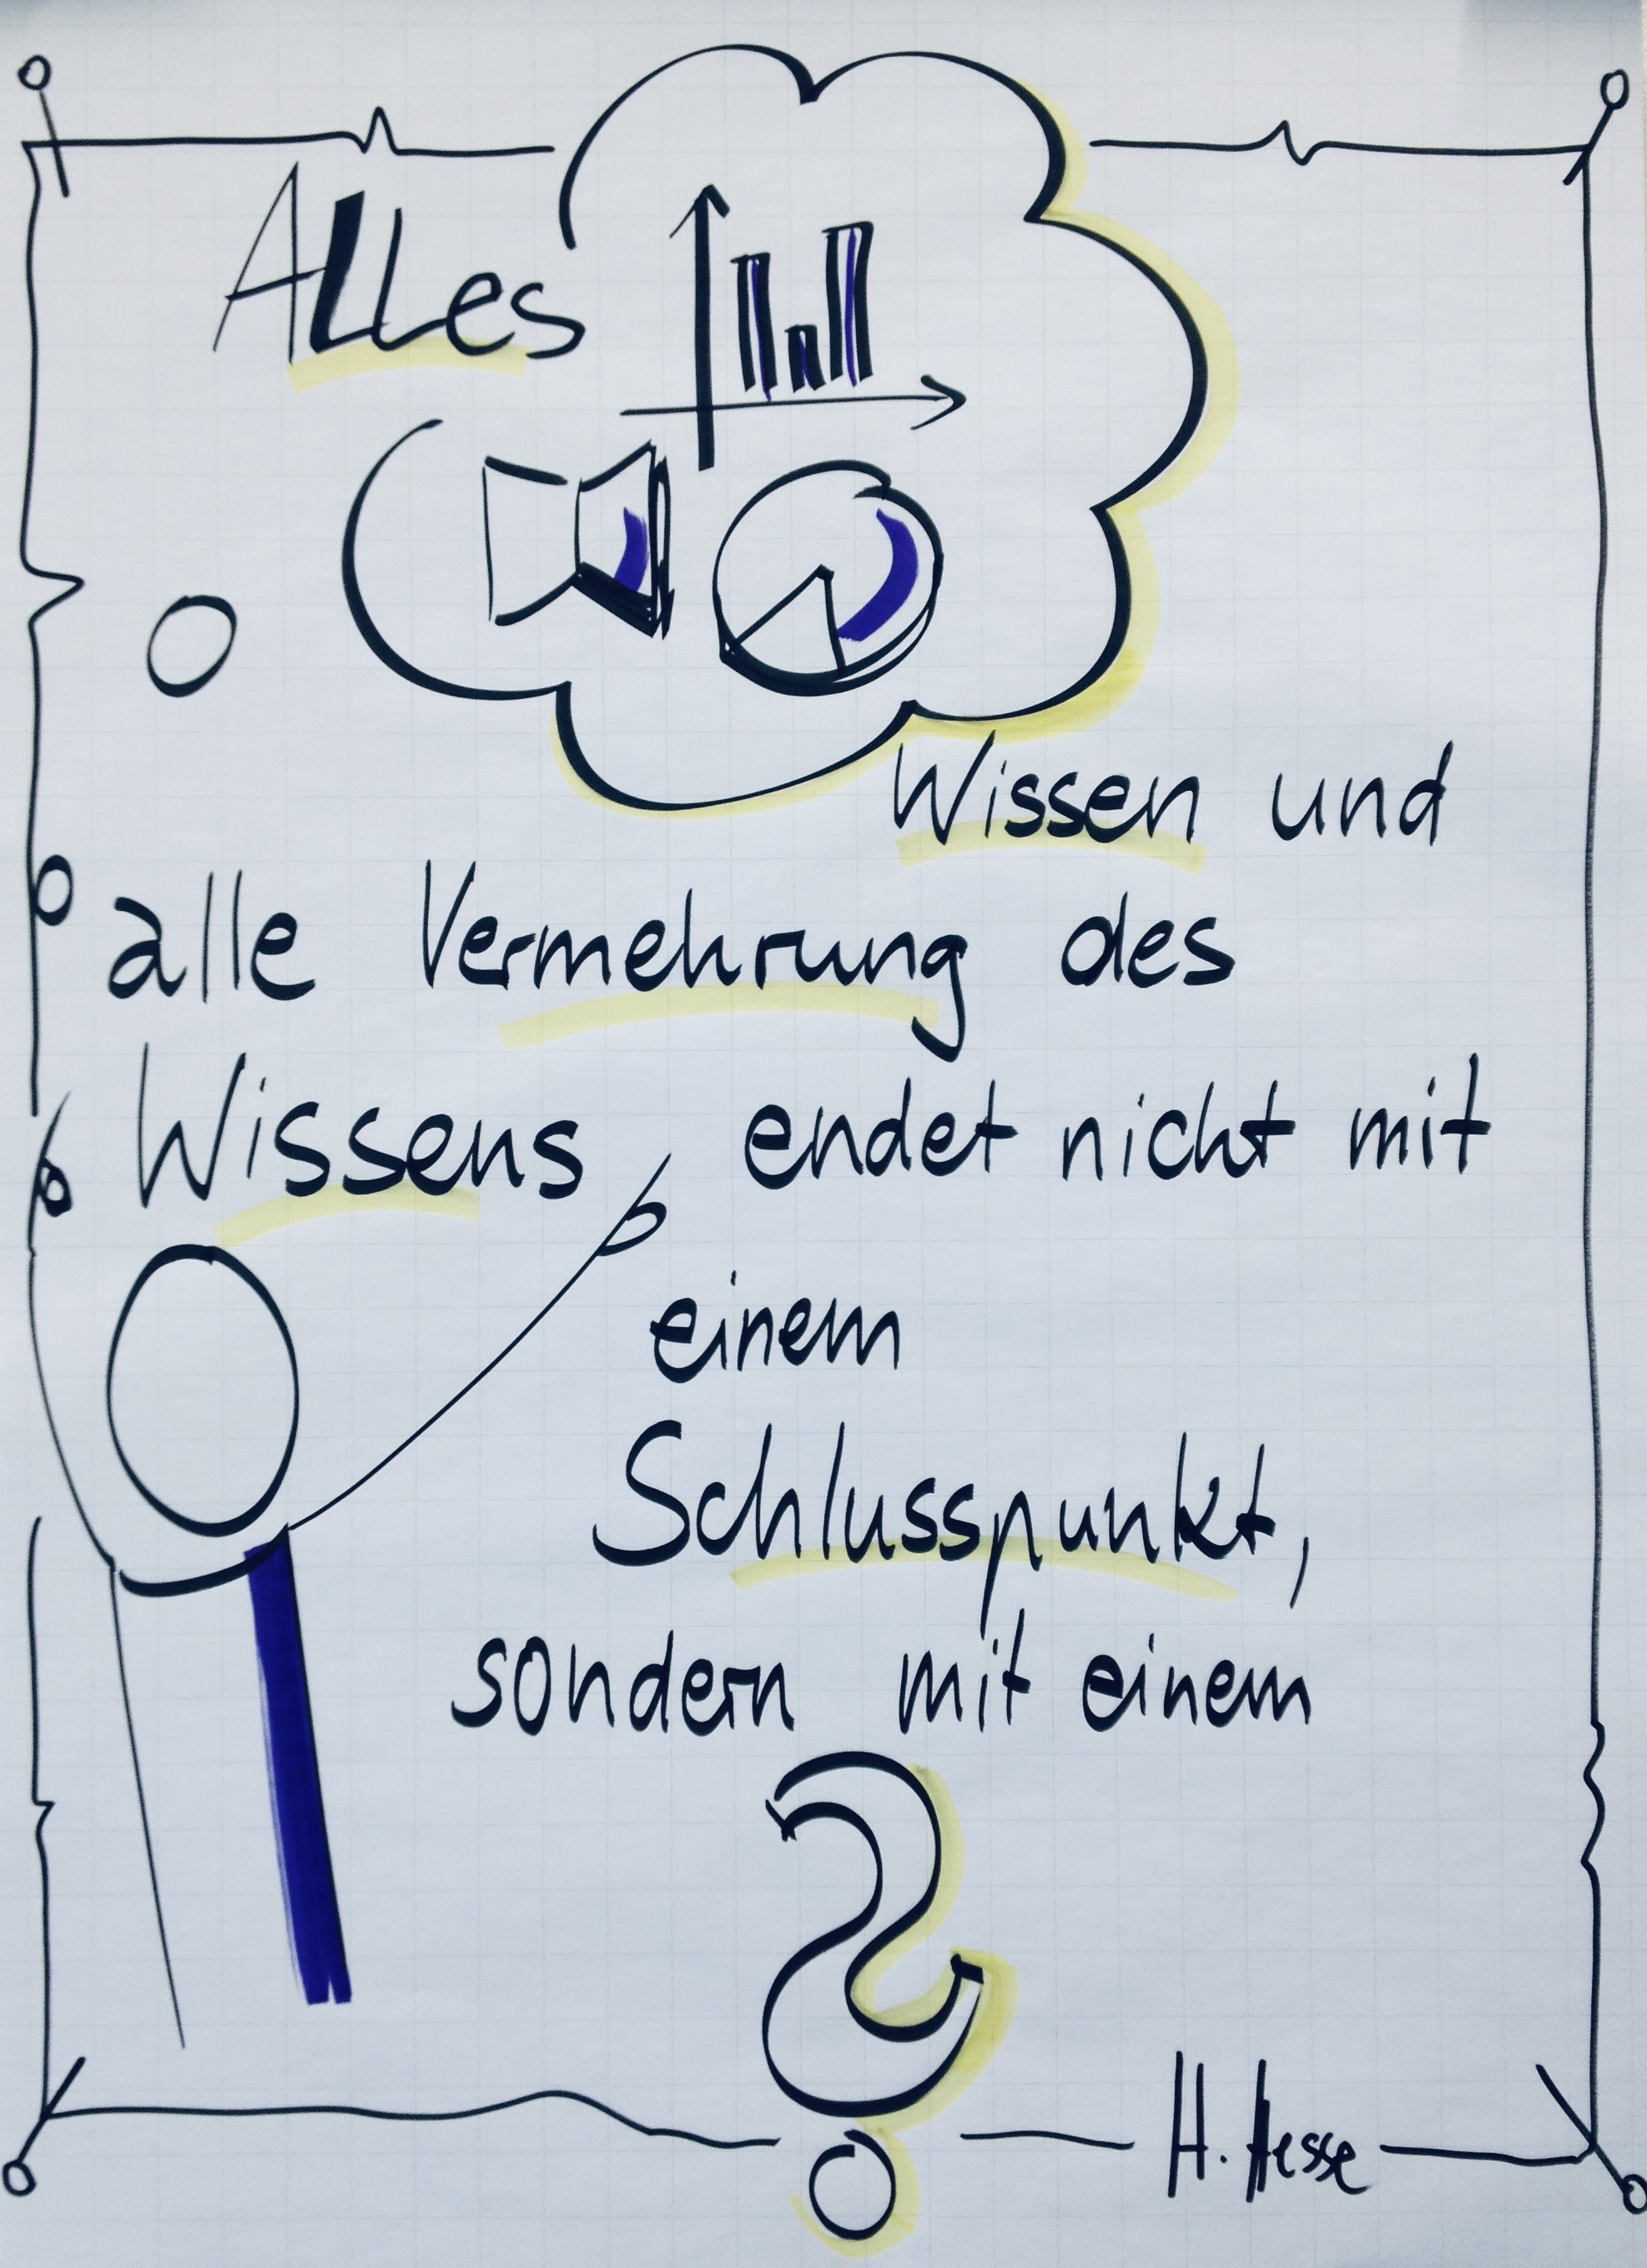 Alles
Wissen und
alle Vermehrung des
Wissens endet nicht mit
einem
Schlusspunkt,
sondern mit einem
?
H. Hesse